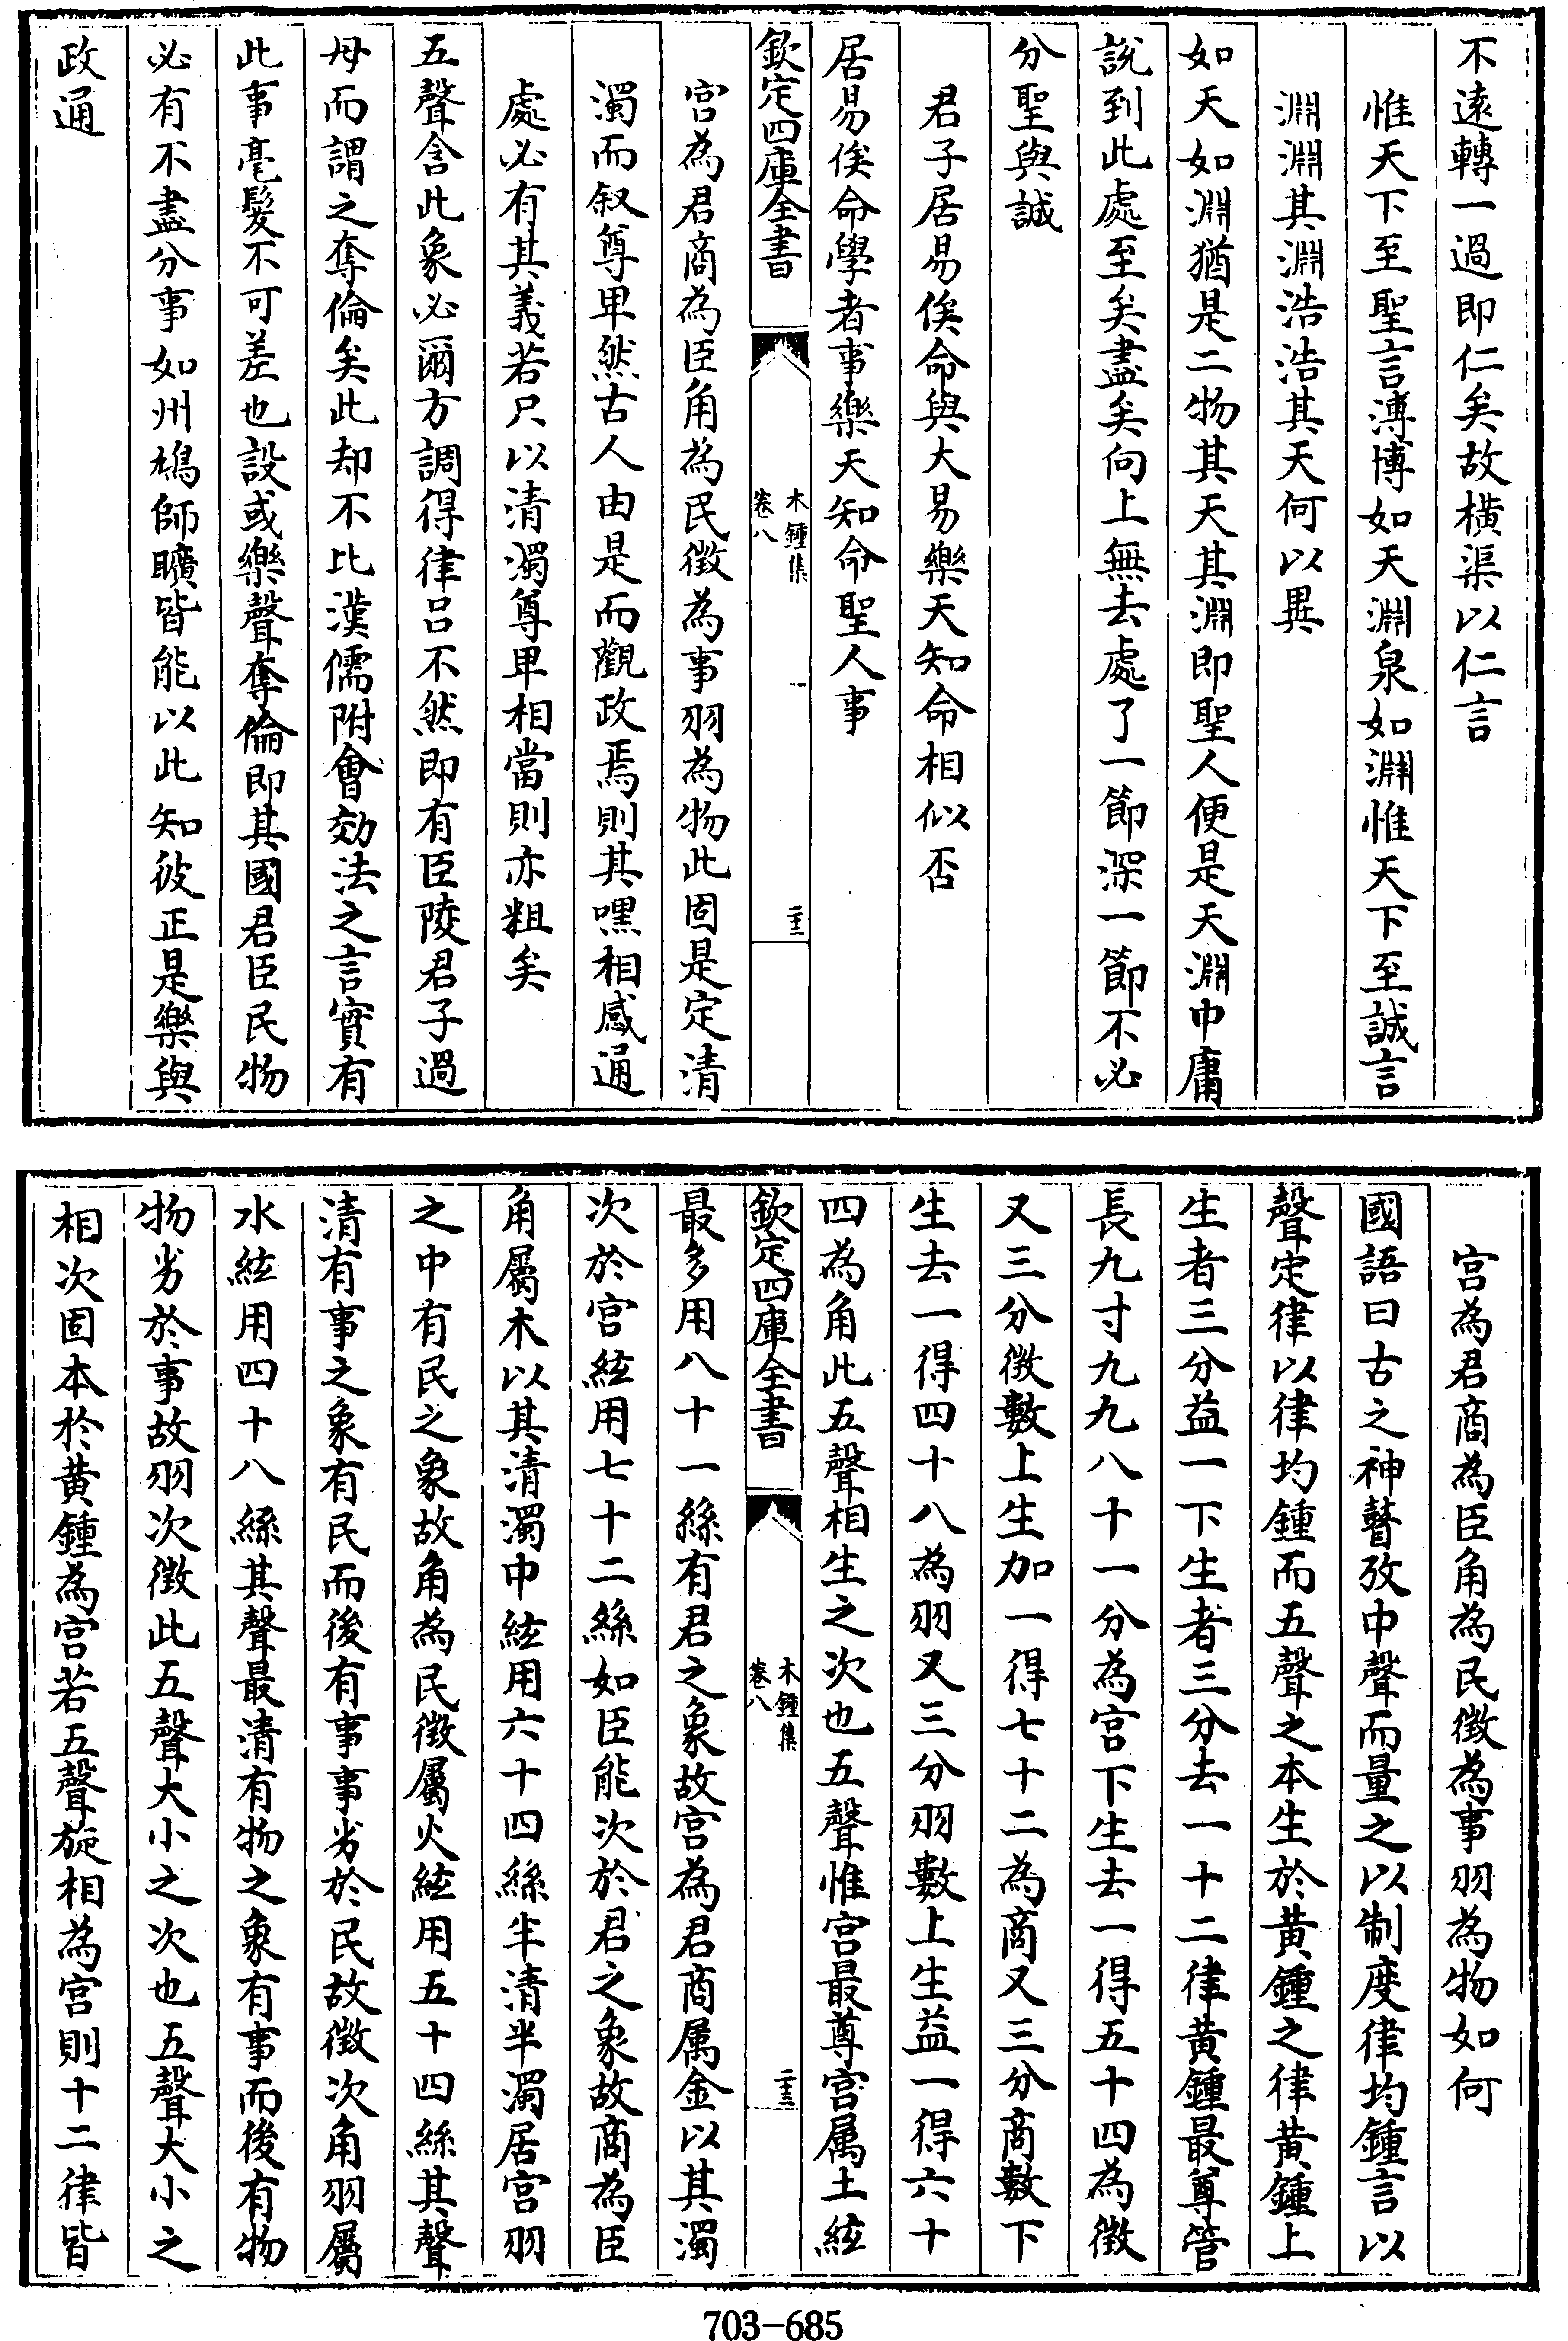 不遠轉一過即仁矣故橫渠以仁言
惟天下至聖言溥博如天淵泉如淵惟天下至誠言
淵淵其淵浩浩其天何以異
如天如淵猶是二物其天其淵即聖人便是天淵中庸
說到此處至矣盡矣向上無去處了一節深一節不必
分聖與誠
君子居易俟命與大易樂天知命相似否
居易俟命學者事樂天知命聖人事
欽定四庫全書
木鍾集
卷八
二十二
宫為君商為臣角為民徵為事羽為物此固是定清
濁而叙尊卑然古人由是而觀政焉則其嘿相感通
處必有其義若只以清濁尊卑相當則亦粗矣
五聲含此象必爾方調得律吕不然即有臣陵君子過
母而謂之奪倫矣此却不比漢儒附會效法之言實有
此事毫髮不可差也設或樂聲奪倫即其國君臣民物
必有不盡分事如州鳩師曠皆能以此知彼正是樂與
政通
宫為君商為臣角為民徵為事羽為物如何
國語曰古之神瞽攷中聲而量之以制度律均鍾言以
聲定律以律均鍾而五聲之本生於黄鍾之律黄鍾上
生者三分益一下生者三分去一十二律黄鍾最尊管
長九寸九九八十一分為宫下生去一得五十四為徵
又三分徵數上生加一得七十二為商又三分商數下
生去一得四十八為羽又三分羽數上生益一得六十
四為角此五聲相生之次也五聲惟宫最尊宫属土絃
欽定四庫全書
木鍾集
卷八
二十三
最多用八十一絲有君之象故宫為君商属金以其濁
次於宫絃用七十二絲如臣能次於君之象故商為臣
角屬木以其清濁中絃用六十四絲半清半濁居宫羽
之中有民之象故角為民徵屬火絃用五十四絲其聲
清有事之象有民而後有事事劣於民故徵次角羽屬
水絃用四十八絲其聲最清有物之象有事而後有物
物劣於事故羽次徵此五聲大小之次也五聲大小之
相次固本於黄鍾為宫若五聲旋相為宫則十二律皆
703-685